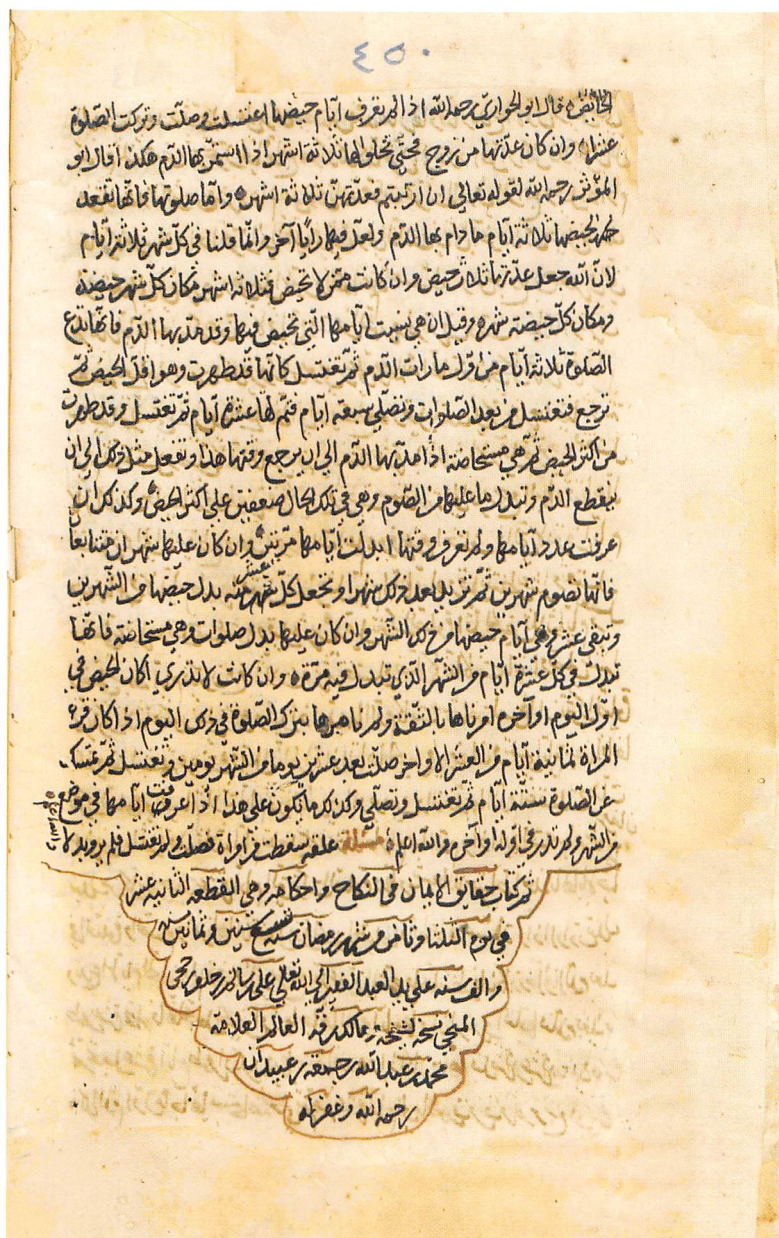 ٤٥٠
الحائض قال ابو الحواري رحمه الله اذا لم تعرف ايام حيضها اغتسلت وصلت وتركت الصلوة
عشرا وان كان عدتها من زوج فحتى تخلوا لها ثلاثة اشهر اذا استمر بها الدم هكذا قال ابو
المؤثر رحمه الله لقوله تعالى ان ارتبتم فعدتهن ثلاثة اشهر واما صلوتها فانها تقعد
لحيضها ثلاثة ايام ما دام بها الدم ولعل فيها رايا آخر وانما قلنا في كل شهر ثلاثة ايام
لان الله جعل عدتها ثلاث حيض وان كانت ممن لا تحيض فثلاثة اشهر مكان كل شهر حيضة
ومكان كل حيضة شهر وقيل ان هي نسيت ايامها التي تحيض فيها وقد مد بها الدم فانها تدع
الصلوة ثلاثة ايام من اول ما رات الدم ثم تغتسل كانها قد طهرت وهو اقل الحيض ثم
ترجع فتغتسل بعد الصلوات وتصلي سبعة ايام فتم لها عشرة ايام ثم تغتسل وقد طهرت
من اكثر الحيض ثم هي مستحاضة اذا مد بها الدم الى ان يرجع وقتها هذا وتفعل مثل ذلك الى ان
ينقطع الدم وتبدل ما عليها من الصوم وهي في تلك الحال على اكثر الحيض وكذلك ان
عرفت عدد ايامها ولم تعرف وقتها ابدلت ايامها مرتين وان كان عليها شهران متتابعان
فانها تصوم شهرين ثم تزيد بعد ذلك شهرا وتجعل كل عشر منه بدل حيضها من الشهرين
وتبقى عشر وهي ايام حيضها من ذلك الشهر وان كان عليها بدل صلوات وهي مستحاضة فانها
تبدل في كل عشرة ايام من الشهر الذي تبدل فيه مرة وان كانت لا تدري اكان الحيض في
اول اليوم او آخره امرناها بالثقة ولم نامرها بترك الصلوة في ذلك اليوم اذا كان قرء
المراة ثمانية ايام من العشر الاواخر صلت بعد عشرين يوما من الشهر يومين وتغتسل ثم تمسك
عن الصلوة ستة ايام ثم تغتسل وتصلي وكذلك ما يكون على هذا اذا عرفت ايامها في موضع
من الشهر ولم تدر في اوله او آخره والله اعلم مسئلة علقه سقطت من امراة فصلت ولم تغتسل فلم يرو بدلا
تم كتاب حقايق الايمان في النكاح واحكامه وهي القطعه الثانيه عشر
في يوم الثلثا وثامن من شهر رمضان سنه وثمانين
والف سنه على يد العبد الفقير الى الله تعالى علي بن سالم بن خلف
المنحي نسخه لشيخه ومالك رقه العالم العلامة
محمد بن عبد الله بن جمعه بن عبيدان
رحمه الله وغفر له